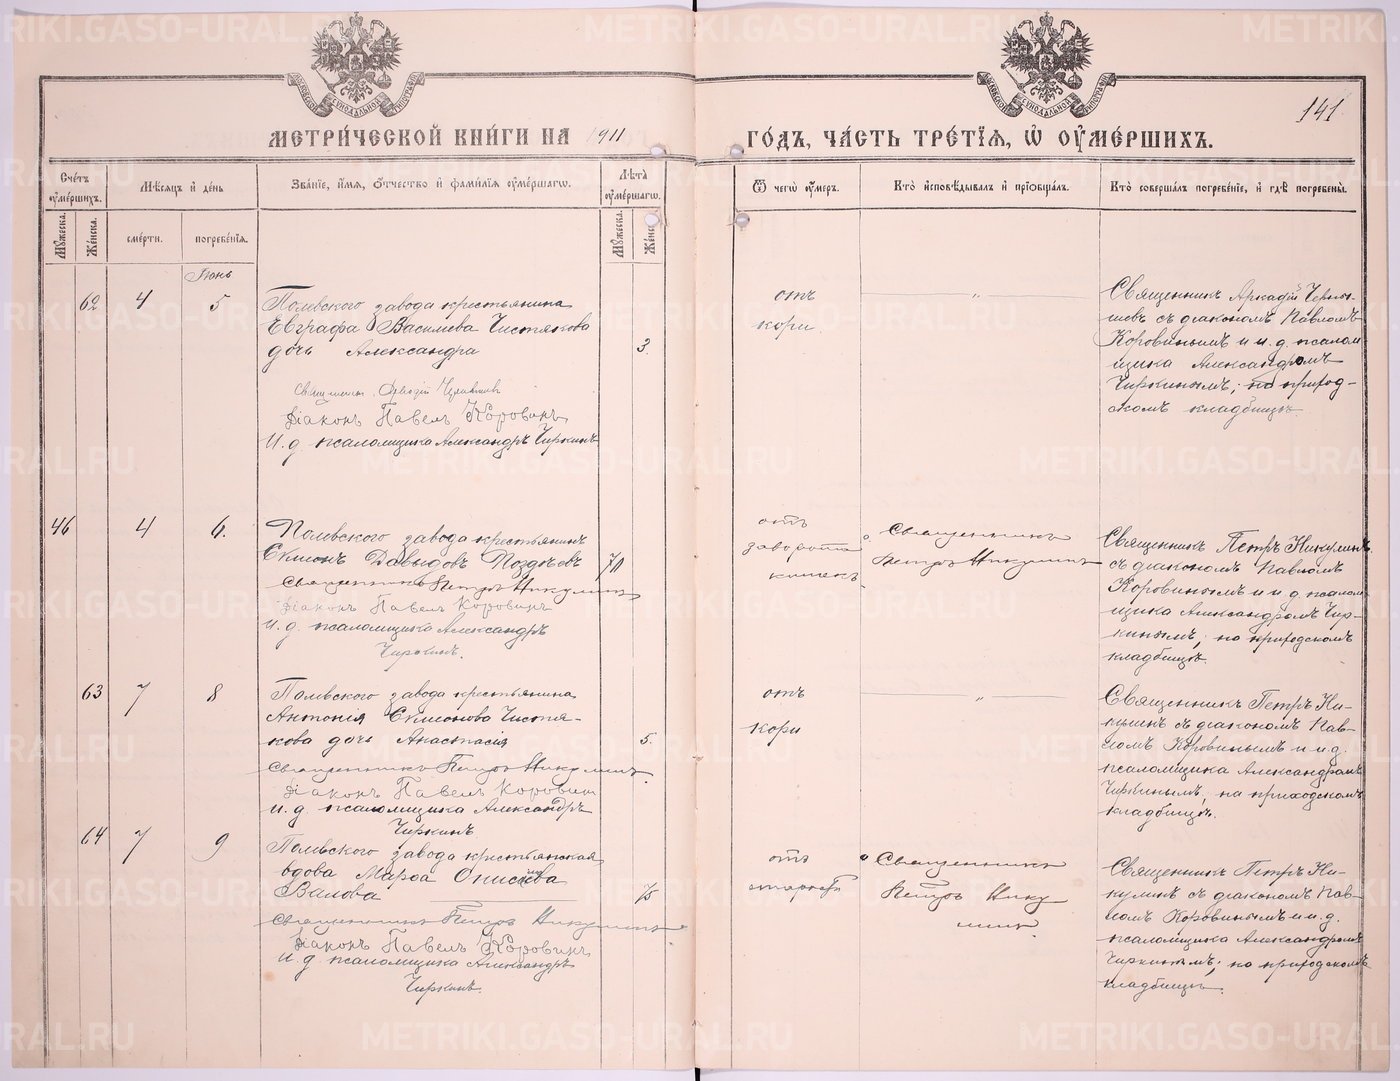 141
МЕТРИ́ЧЕСКОЙ КНИ́ГИ НА 1911 ГО́ДЪ, ЧА́СТЬ ТРЕ́ТЇѦ, Ѡ҆ ОУ҆МЕ́РШИХЪ.
Сче́тъ оу҆ме́ршихъ.
Мꙋ́жеска.
Же́нска.
Мѣ́сяцъ и҆ де́нь
сме́рти.
погребе́нїя.
Зва́нїе, и҆́мя, ѻ҆́тчество и҆ фами́лїя оу҆ме́ршагѡ.
Лѣ́та оу҆ме́ршагѡ.
Мꙋ́жеска
Же́нск
Ѿ чегѡ̀ оу҆́меръ.
Кто̀ и҆сповѣ́дывалъ и҆ прїѻбща́лъ.
Кто̀ соверша́лъ погребе́нїе, и҆ гдѣ̀ погребены̀.
Июнь
62 4 5
Полевского завода крестьянина
Евграфа Василиева Чистякова
дочь Александра
3.
Священникъ Аркадій Чернышевъ
Діаконъ Павелъ Коровинъ
И. д. псаломщика Александръ Чиркинъ
отъ
кори
„
Священникъ Аркадій Черны-
шевъ съ діакономъ Павломъ
Коровинымъ и и. д. псалом
щика Александромъ
Чиркинымъ; на приход-
скомъ кладбищѣ
46 4 6.
Полевского завода крестьянинъ
Симеонъ Давыдовъ Поздѣевъ
70
Священникъ Петръ Никулинъ
Діаконъ Павелъ Коровинъ
И. д. псаломщика Александръ
Чиркинъ.
отъ
заворота
кишекъ
Священникъ
Петръ Никулинъ
Священникъ Петръ Никулинъ
съ діакономъ Павломъ
Коровинымъ и и. д. псалом
щика Александромъ Чир-
кинымъ; на приходскомъ
кладбищѣ.
63 7 8
Полевского завода крестьянина
Антонія Симеонова Чистя-
кова дочь Анастасія
5.
Священникъ Петръ Никулинъ
Діаконъ Павелъ Коровинъ
И. д. псаломщика Александръ
Чиркинъ
отъ
кори
„
Священникъ Петръ Ни-
кулинъ съ діакономъ Пав-
ломъ Коровинымъ и и. д.
псаломщика Александромъ
Чиркинымъ; на приходскомъ
кладбищѣ.
64 7 9
Полевского завода крестьянская
вдова Марѳа
Валова
75
Священникъ Петръ Никулинъ
Діаконъ Павелъ Коровинъ
И. д. псаломщика Александръ
Чиркинъ.
отъ
старости
Священникъ
Петръ Нику
линъ
Священникъ Петръ Ни-
кулинъ съ діакономъ Пав-
ломъ Коровинымъ и и. д.
псаломщика Александромъ
Чиркинымъ; на приходскомъ
кладбищѣ.
METRIKI.GASO-URAL.RU